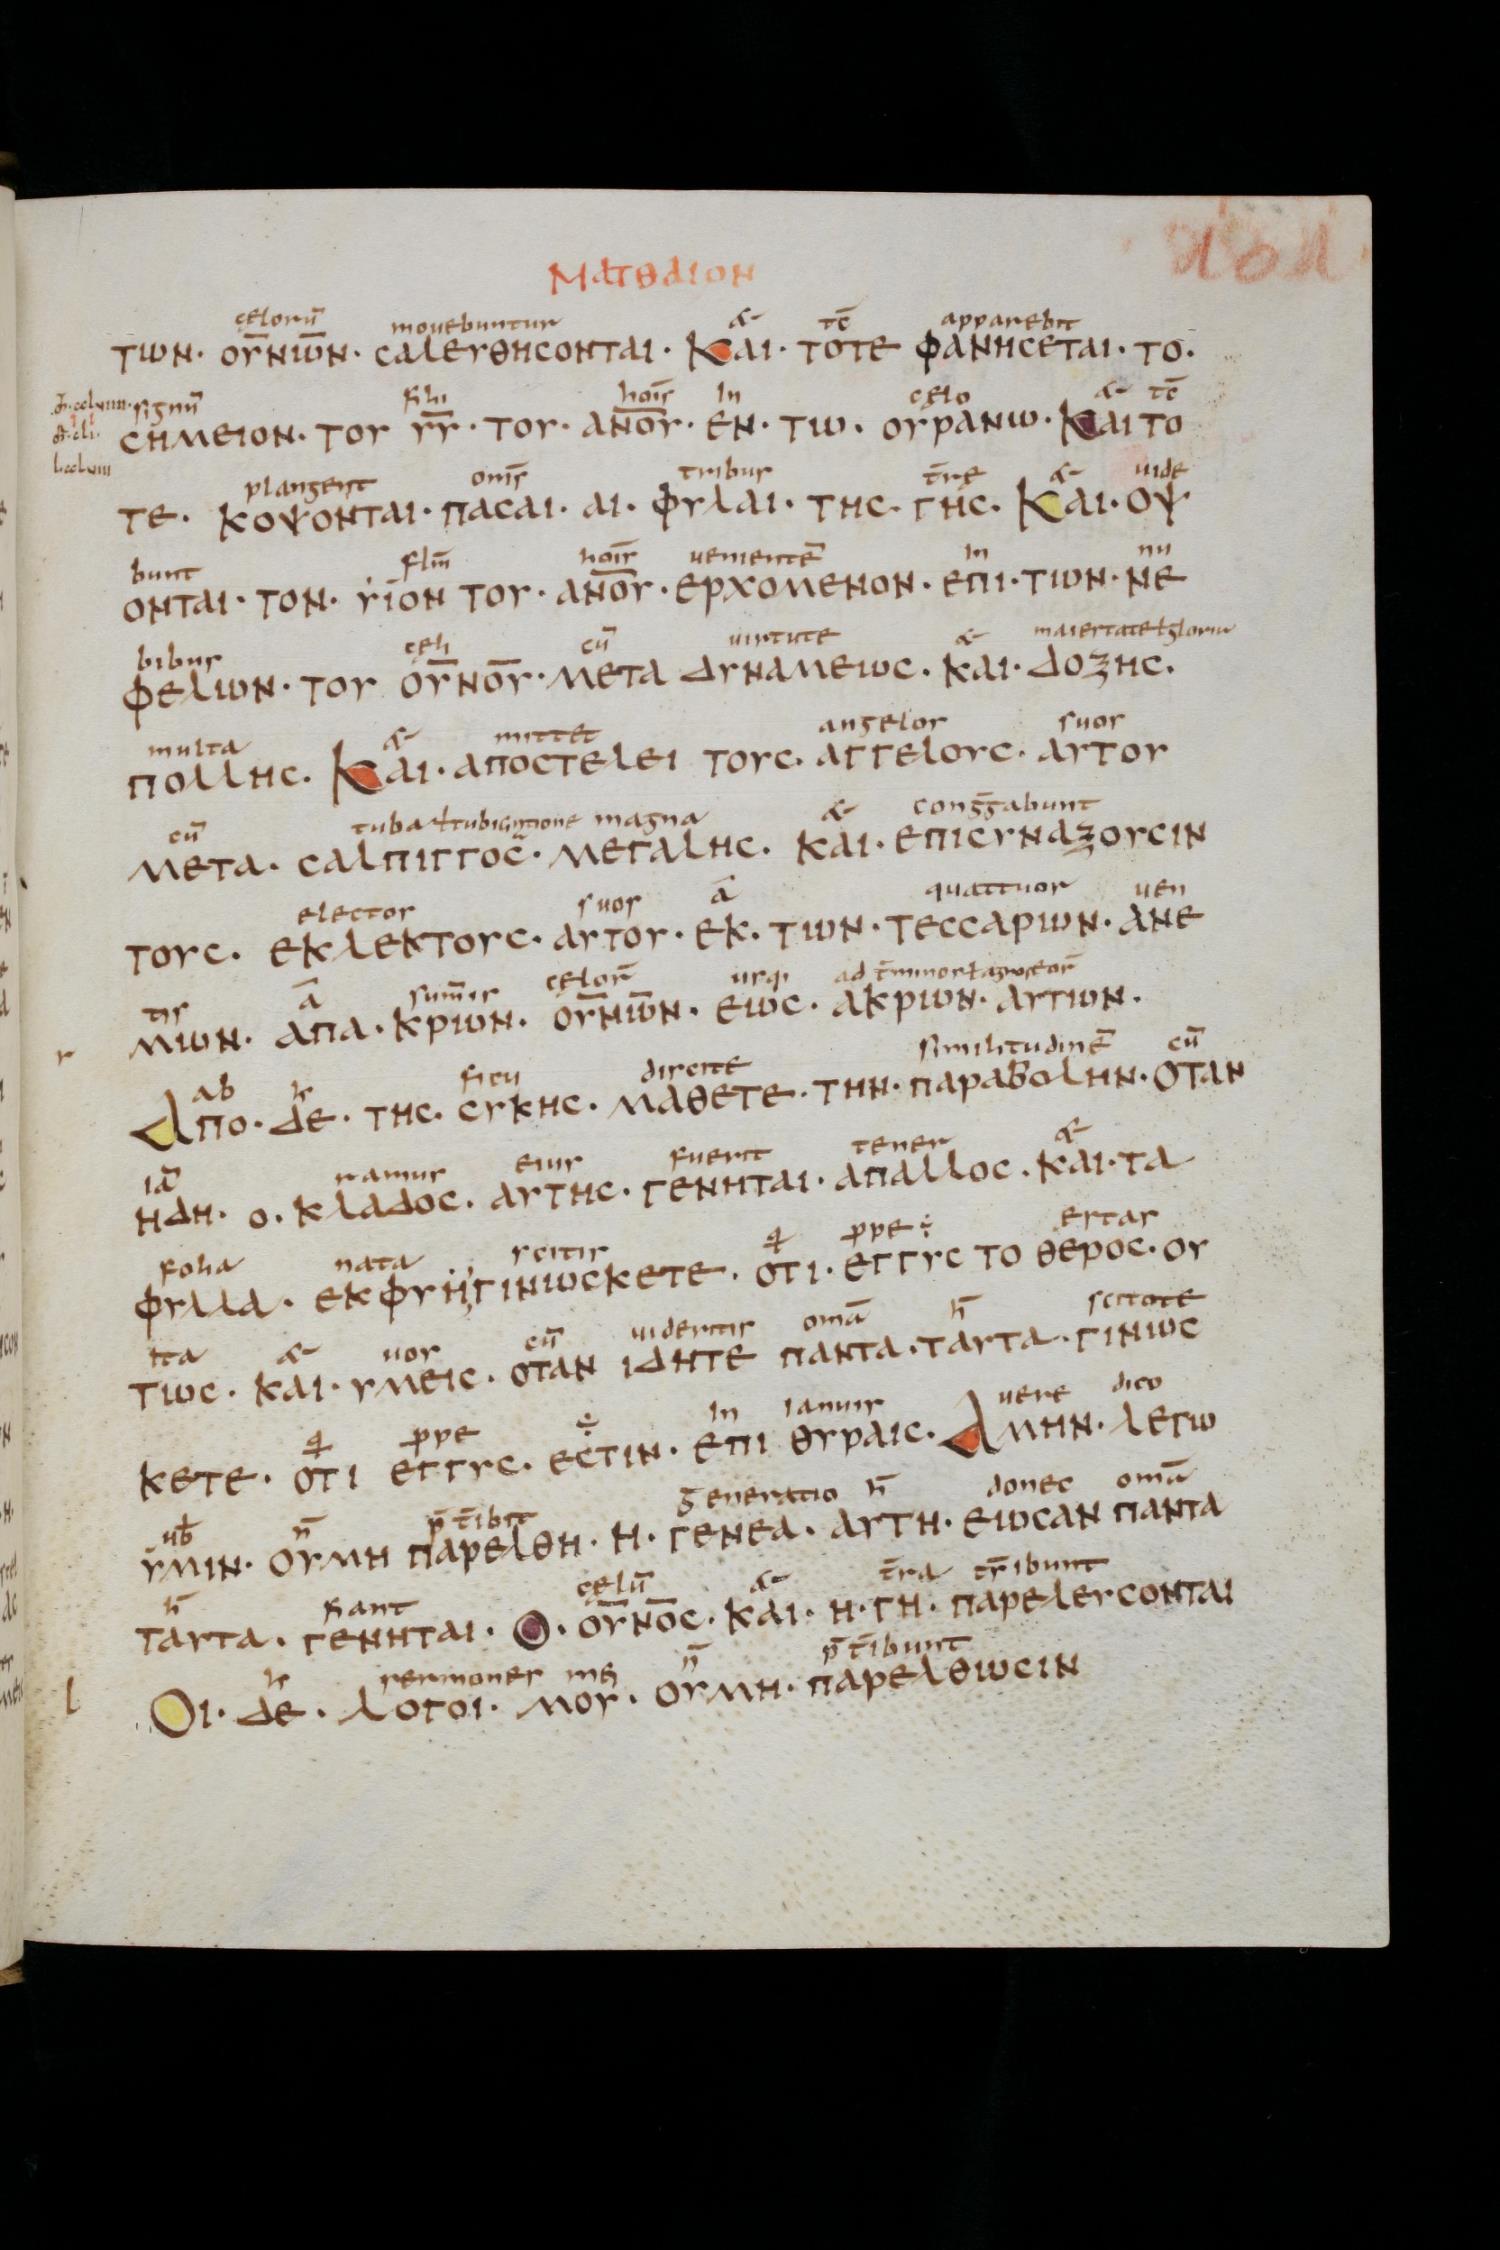 ΜΑΤΘΑΙΟΝ
cęlorū mouebuntur & tc̄ apparebit
ΤΩΝ· ΟΥ̅ΝΩ̅Ν· CΑΛΕΥΘΗCΟΝΤΑΙ· ΚΑΙ· ΤΟΤΕ ΦΑΝΗCΕΤΑΙ· ΤΟ·
signū filii hoīs In cęlo & tc̄
CΗΜΕΙΟΝ· ΤΟΥ Υ̅Υ̅· ΤΟΥ· ΑΝ̅Ο̅Υ· ΕΝ· ΤΩ· ΟΥΡΑΝΩ· ΚΑΙ ΤΟ
plangent om̄s tribus t̄re & uide
ΤΕ· ΚΟΨΟΝΤΑΙ· ΠΑCΑΙ· ΑΙ· ΦΥΛΑΙ· ΤΗC· ΓΗC· ΚΑΙ· ΟΨ
bunt fiłm hoīs uenientē In nu
ΟΝΤΑΙ· ΤΟΝ· ΥΙΟΝ ΤΟΥ· ΑΝ̅Ο̅Υ· ΕΡΧΟΜΕΝΟΝ· ΕΠΙ· ΤΩΝ· ΝΕ
bibus cęli cū uirtute & maiestate ł gloria
ΦΕΛΩΝ· ΤΟΥ ΟΥ̅ΝΟ̅Υ· ΜΕΤΑ ΔΥΝΑΜΕΩC· ΚΑΙ· ΔΟΞΗC·
multa & mittet angelos suos
ΠΟΛΛΗC· ΚΑΙ· ΑΠΟCΤΕΛΕΙ ΤΟΥC· ΑΓΓΕΛΟΥC· ΑΥΤΟΥ
cū tuba magna & congḡabunt
ΜΕΤΑ· CΑΛΠΙΓΓΟC· ΜΕΓΑΛΗC· ΚΑΙ· ΕΠΙCΥΝΑΞΟΥCΙΝ
electos suos ā quattuor uen
ΤΟΥC· ΕΚΛΕΚΤΟΥC· ΑΥΤΟΥ· ΕΚ· ΤΩΝ· ΤΕCCΑΡΩΝ· ΑΝΕ
tis ā sum̄is cęlor̄ usq;
ΜΩΝ· ΑΠΑ· ΚΡΩΝ· ΟΥ̅ΝΩ̅Ν· ΕΩC· ΑΚΡΩΝ· ΑΥΤΩΝ·
ab ficu discite similitudinē cū
ΑΠΟ· ΔΕ· ΤΗC· CΥΚΗC· ΜΑΘΕΤΕ· ΤΗΝ· ΠΑΡΑΒΟΛΗΝ· ΟΤΑΝ
iā ramus eius fuerit tener &
ΗΔΗ· Ο· ΚΛΑΔΟC· ΑΥΤΗC· ΓΕΝΗΤΑΙ· ΑΠΑΛΛΟC· ΚΑΙ· ΤΑ
folia nata scitis ꝓpe ÷ estas
ΦΥΛΛΑ· ΕΚΦΥΗ ΓΙΝΩCΚΕΤΕ· ΟΤΙ· ΕΓΓΥC ΤΟ ΘΕΡΟC· ΟΥ
ita & uos cū uideritis omā h̄ scitote
ΤΩC· ΚΑΙ· ΥΜΕΙC· ΟΤΑΝ ΙΔΗΤΕ ΠΑΝΤΑ· ΤΑΥΤΑ· ΓΙΝΩC
ꝓpe ÷ In ianuis uere dico
ΚΕΤΕ· ΟΤΙ ΕΓΓΥC· ΕCΤΙΝ· ΕΠΙ ΘΥΡΑΙC· ΑΜΗΝ· ΛΕΓΩ
ub̄ n̄ p̄t̄ibit generatio h̄ donec omā
ΥΜΙΝ· ΟΥΜΗ ΠΑΡΕΛΘΗ· Η· ΓΕΝΕΑ· ΑΥΤΗ· ΕΩCΑΝ ΠΑΝΤΑ
h̄ fiant cęlū & t̄ra tr̄ibunt
ΤΑΥΤΑ· ΓΕΝΗΤΑΙ· Ο· ΟΥ̅ΝΟ̅C· ΚΑΙ· Η· ΓΗ· ΠΑΡΕΛΕΥCΟΝΤΑΙ
sermones n̄ p̄t̄ibunt
ΟΙ· ΔΕ· ΛΟΓΟΙ· ΜΟΥ· ΟΥΜΗ· ΠΑΡΕΛΘΩCΙΝ